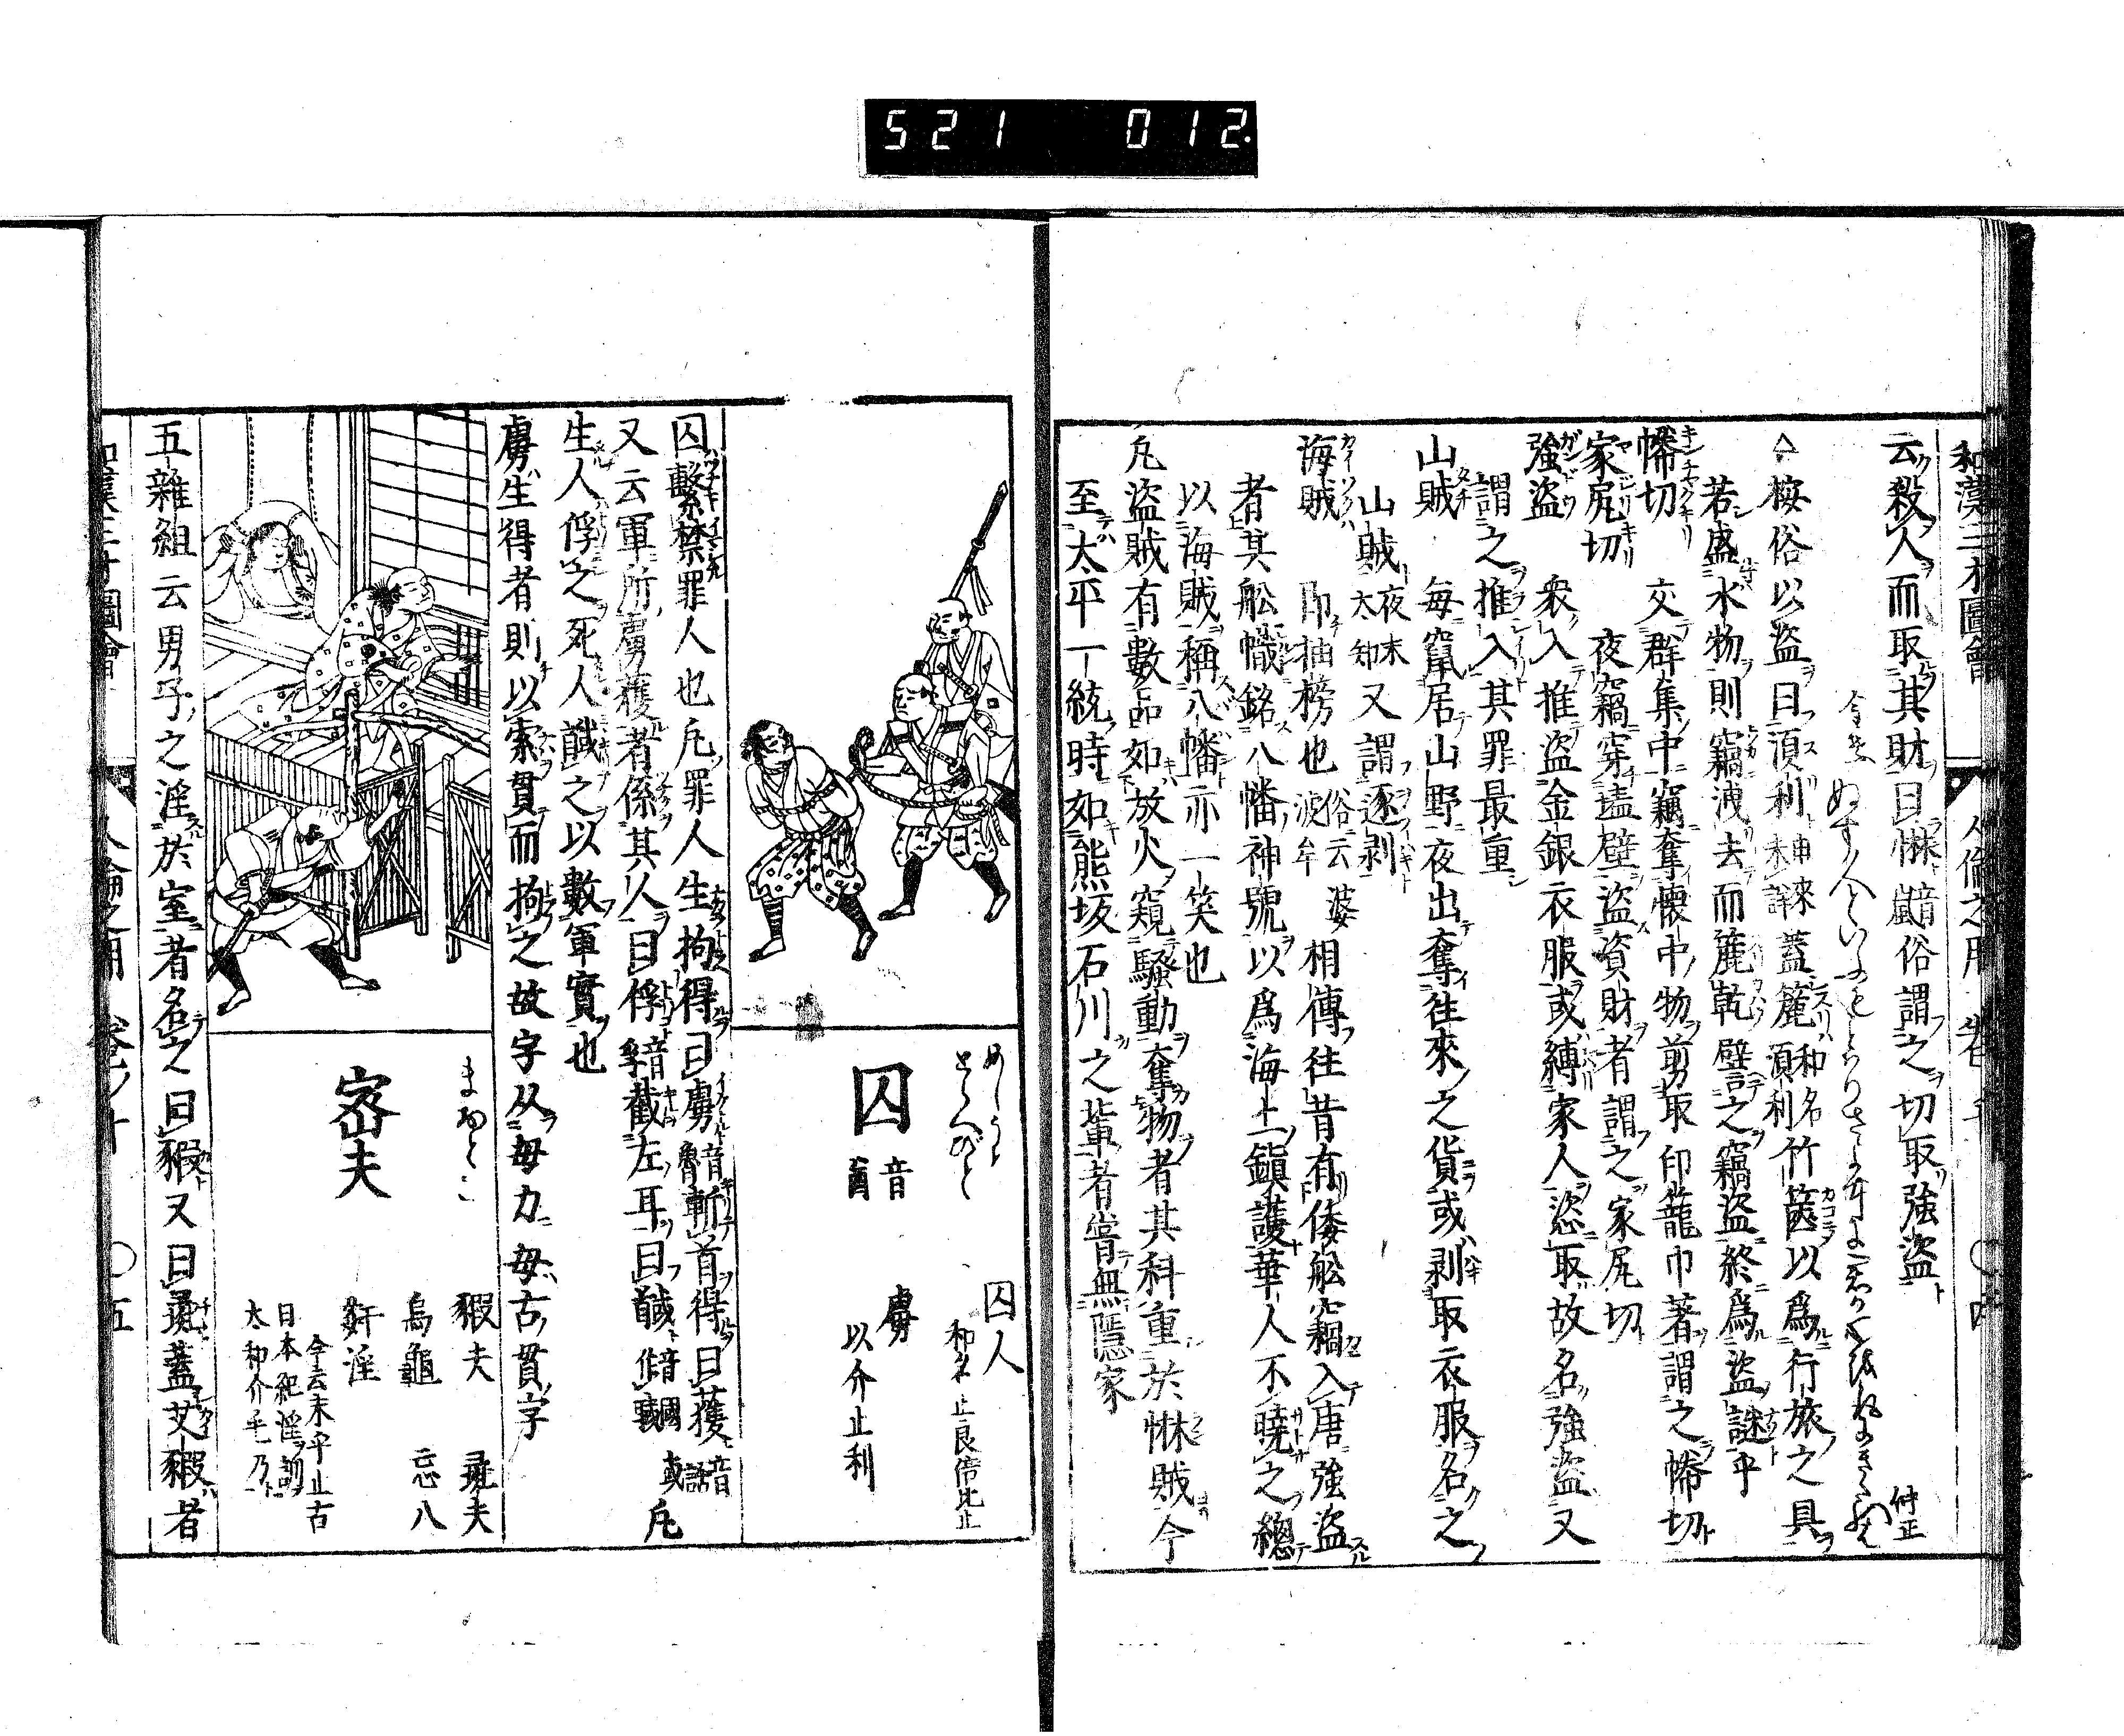 521 012
和漢三才圖會 人倫之用 卷十 〇四
云殺人而取其財曰惏音婪俗謂之切取強盜
金葉 ぬす人
仲正
△按俗以盜曰湏利申來未詳蓋簏和名湏利竹篋以爲行旅之具
若盛水物則竊洩去而簏乾譬之竊盜終爲盜謎乎
幐切 交群集中竊奪懷中物剪取印籠巾著謂之幐切
家尻切 夜竊穿墻壁盜資財者謂之家尻切
強盜 衆入推盜金銀衣服或縛家人恣取故名強盜又
謂之推入其罪最重
山賊 每竄居山野夜出奪往來之貨或剥取衣服名之
山賊夜末太知又謂逐剥
海賊 即抽榜也俗云婆波牟 相傳往昔有倭舩竊入唐強盜
者其舩幟銘八幡神號以爲海上鎭護華人不曉之總
以海賊稱八幡亦一笑也
凡盜賊有數品如放火窺騷動奪物者其科重於惏賊今
至太平一統時如熊坂石川之輩者嘗無隱家
めしうと
とらへびと
囚 音酋
囚人 和名止良倍比止
虜 以介止利
囚繫禁罪人也凡罪人生拘得曰虜音魯斬首得曰獲音話或凡
又云軍所虜獲者係其人曰俘音孚截左耳曰馘音幗
生人俘之死人馘之以數軍實也
虜生得者則以索貫而拘之故字从毋力毋古貫字
まおとこ
密夫
豭夫 㺉夫
烏龜 忘八
姧淫 今云末乎止古
日本紀淫訓
太和介乎乃
五雜組云男子之淫於室者名之曰豭又曰㺉蓋艾豭者
和漢三才圖會 人倫之用 卷ノ十 〇五